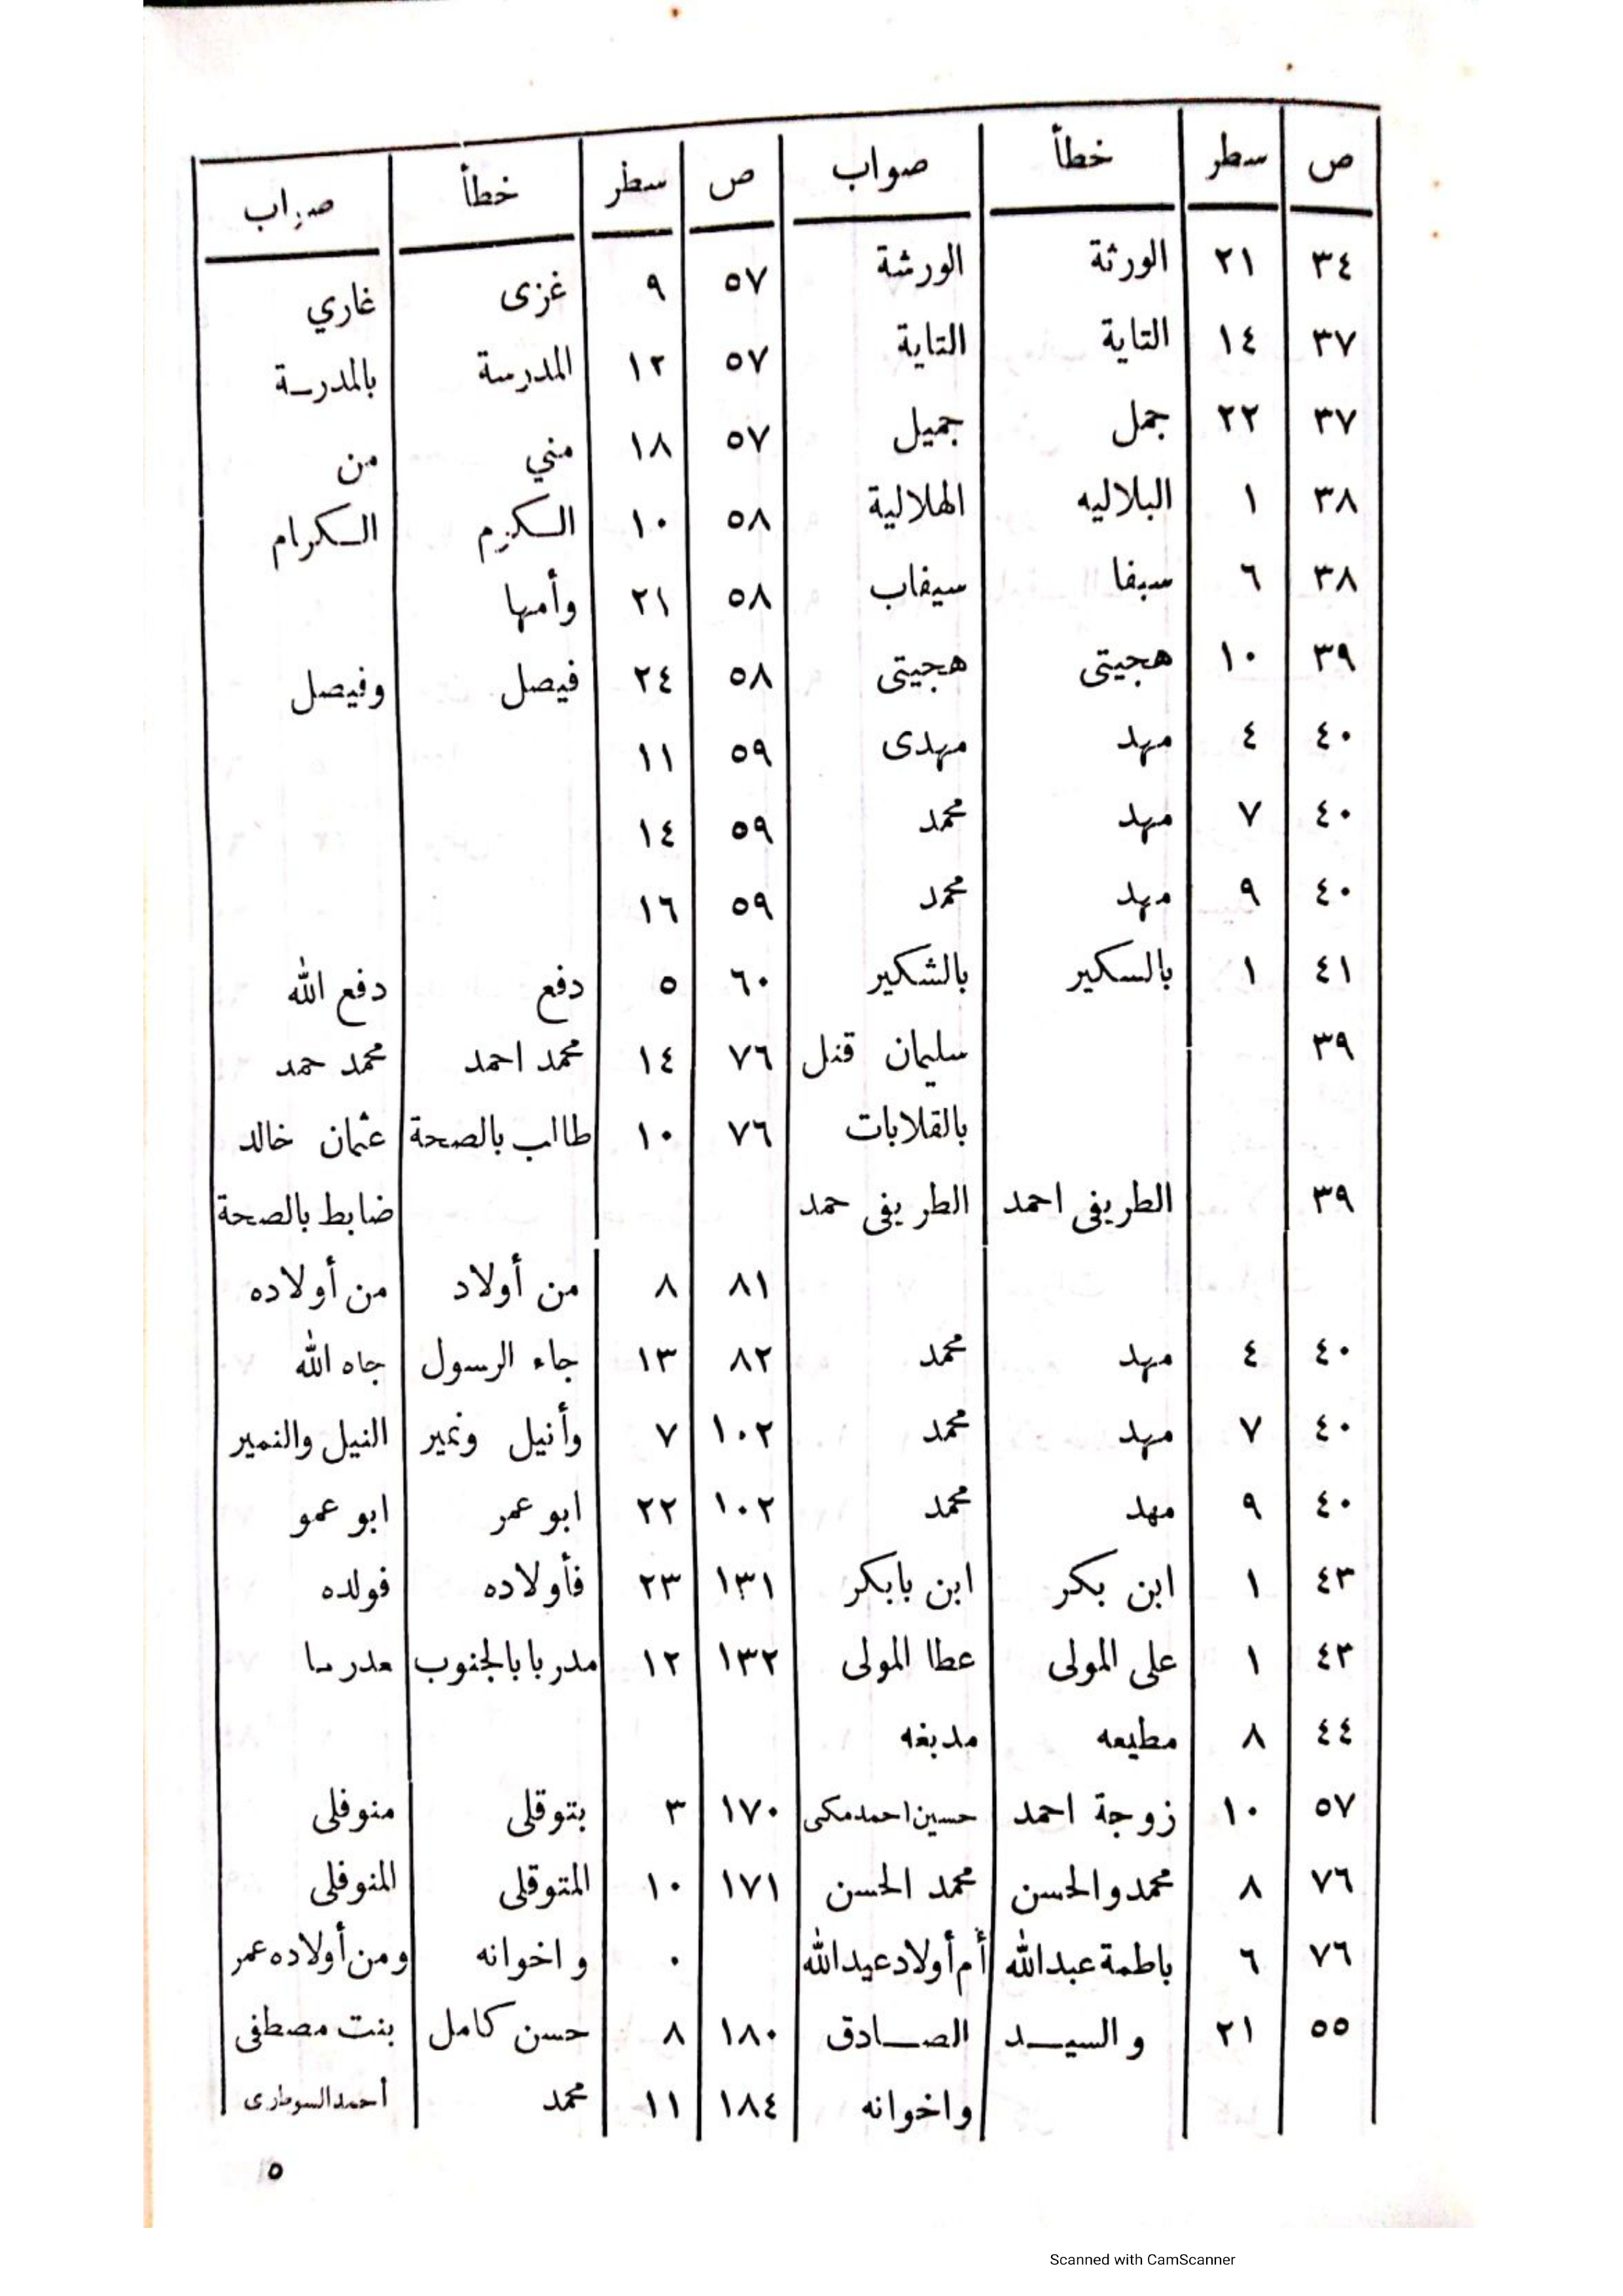 ص سطر خطأ صواب ص سطر خطأ صواب
٣٤ ٢١ الورثة الورشة ٥٧ ٩ غزى غاري
٣٧ ١٤ التاية التاية ٥٧ ١٢ المدرسة بالمدرسة
٣٧ ٢٢ جمل جميل ٥٧ ١٨ مني من
٣٨ ١ البلاليه الهلالية ٥٨ ١٠ الكزم الكرام
٣٨ ٦ سبفا سيفاب ٥٨ ٢١ وأمها
٣٩ ١٠ هجيتى هجيتى ٥٨ ٢٤ فيصل وفيصل
٤٠ ٤ مهد مهدى ٥٩ ١١
٤٠ ٧ مهد محمد ٥٩ ١٤
٤٠ ٩ مهد محمد ٥٩ ١٦
٤١ ١ بالسكير بالشكير ٦٠ ٥ دفع دفع الله
٣٩ سليمان قنل ٧٦ ١٤ محمد احمد محمد حمد
بالقلابات ٧٦ ١٠ طالب بالصحة عثمان خالد
٣٩ الطريفى احمد الطريفى حمد ضابط بالصحة
٨١ ٨ من أولاد من أولاده
٤٠ ٤ مهد محمد ٨٢ ١٣ جاء الرسول جاه الله
٤٠ ٧ مهد محمد ١٠٢ ٧ وأنيل ونمير النيل والنمير
٤٠ ٩ مهد محمد ١٠٢ ٢٢ ابو عمر ابو عمو
٤٣ ١ ابن بكر ابن بابكر ١٣١ ٢٣ فأولاده فولده
٤٣ ١ على المولى عطا المولى ١٣٢ ١٢ مدربا بالجنوب
٤٤ ٨ مطيعه مدبغه
٥٧ ١٠ زوجة احمد حسين احمد مكى ١٧٠ ٣ بتوقلى منوفلى
٧٦ ٨ محمد والحسن محمد الحسن ١٧١ ١٠ المتوقلى المنوفلى
٧٦ ٦ باطمة عبدالله أم أولاد عبدالله ٠ واخوانه ومن أولاده عمر
٥٥ ٢١ والسيد الصادق ١٨٠ ٨ حسن كامل بنت مصطفى
واخوانه ١٨٤ ١١ محمد
٥
Scanned with CamScanner